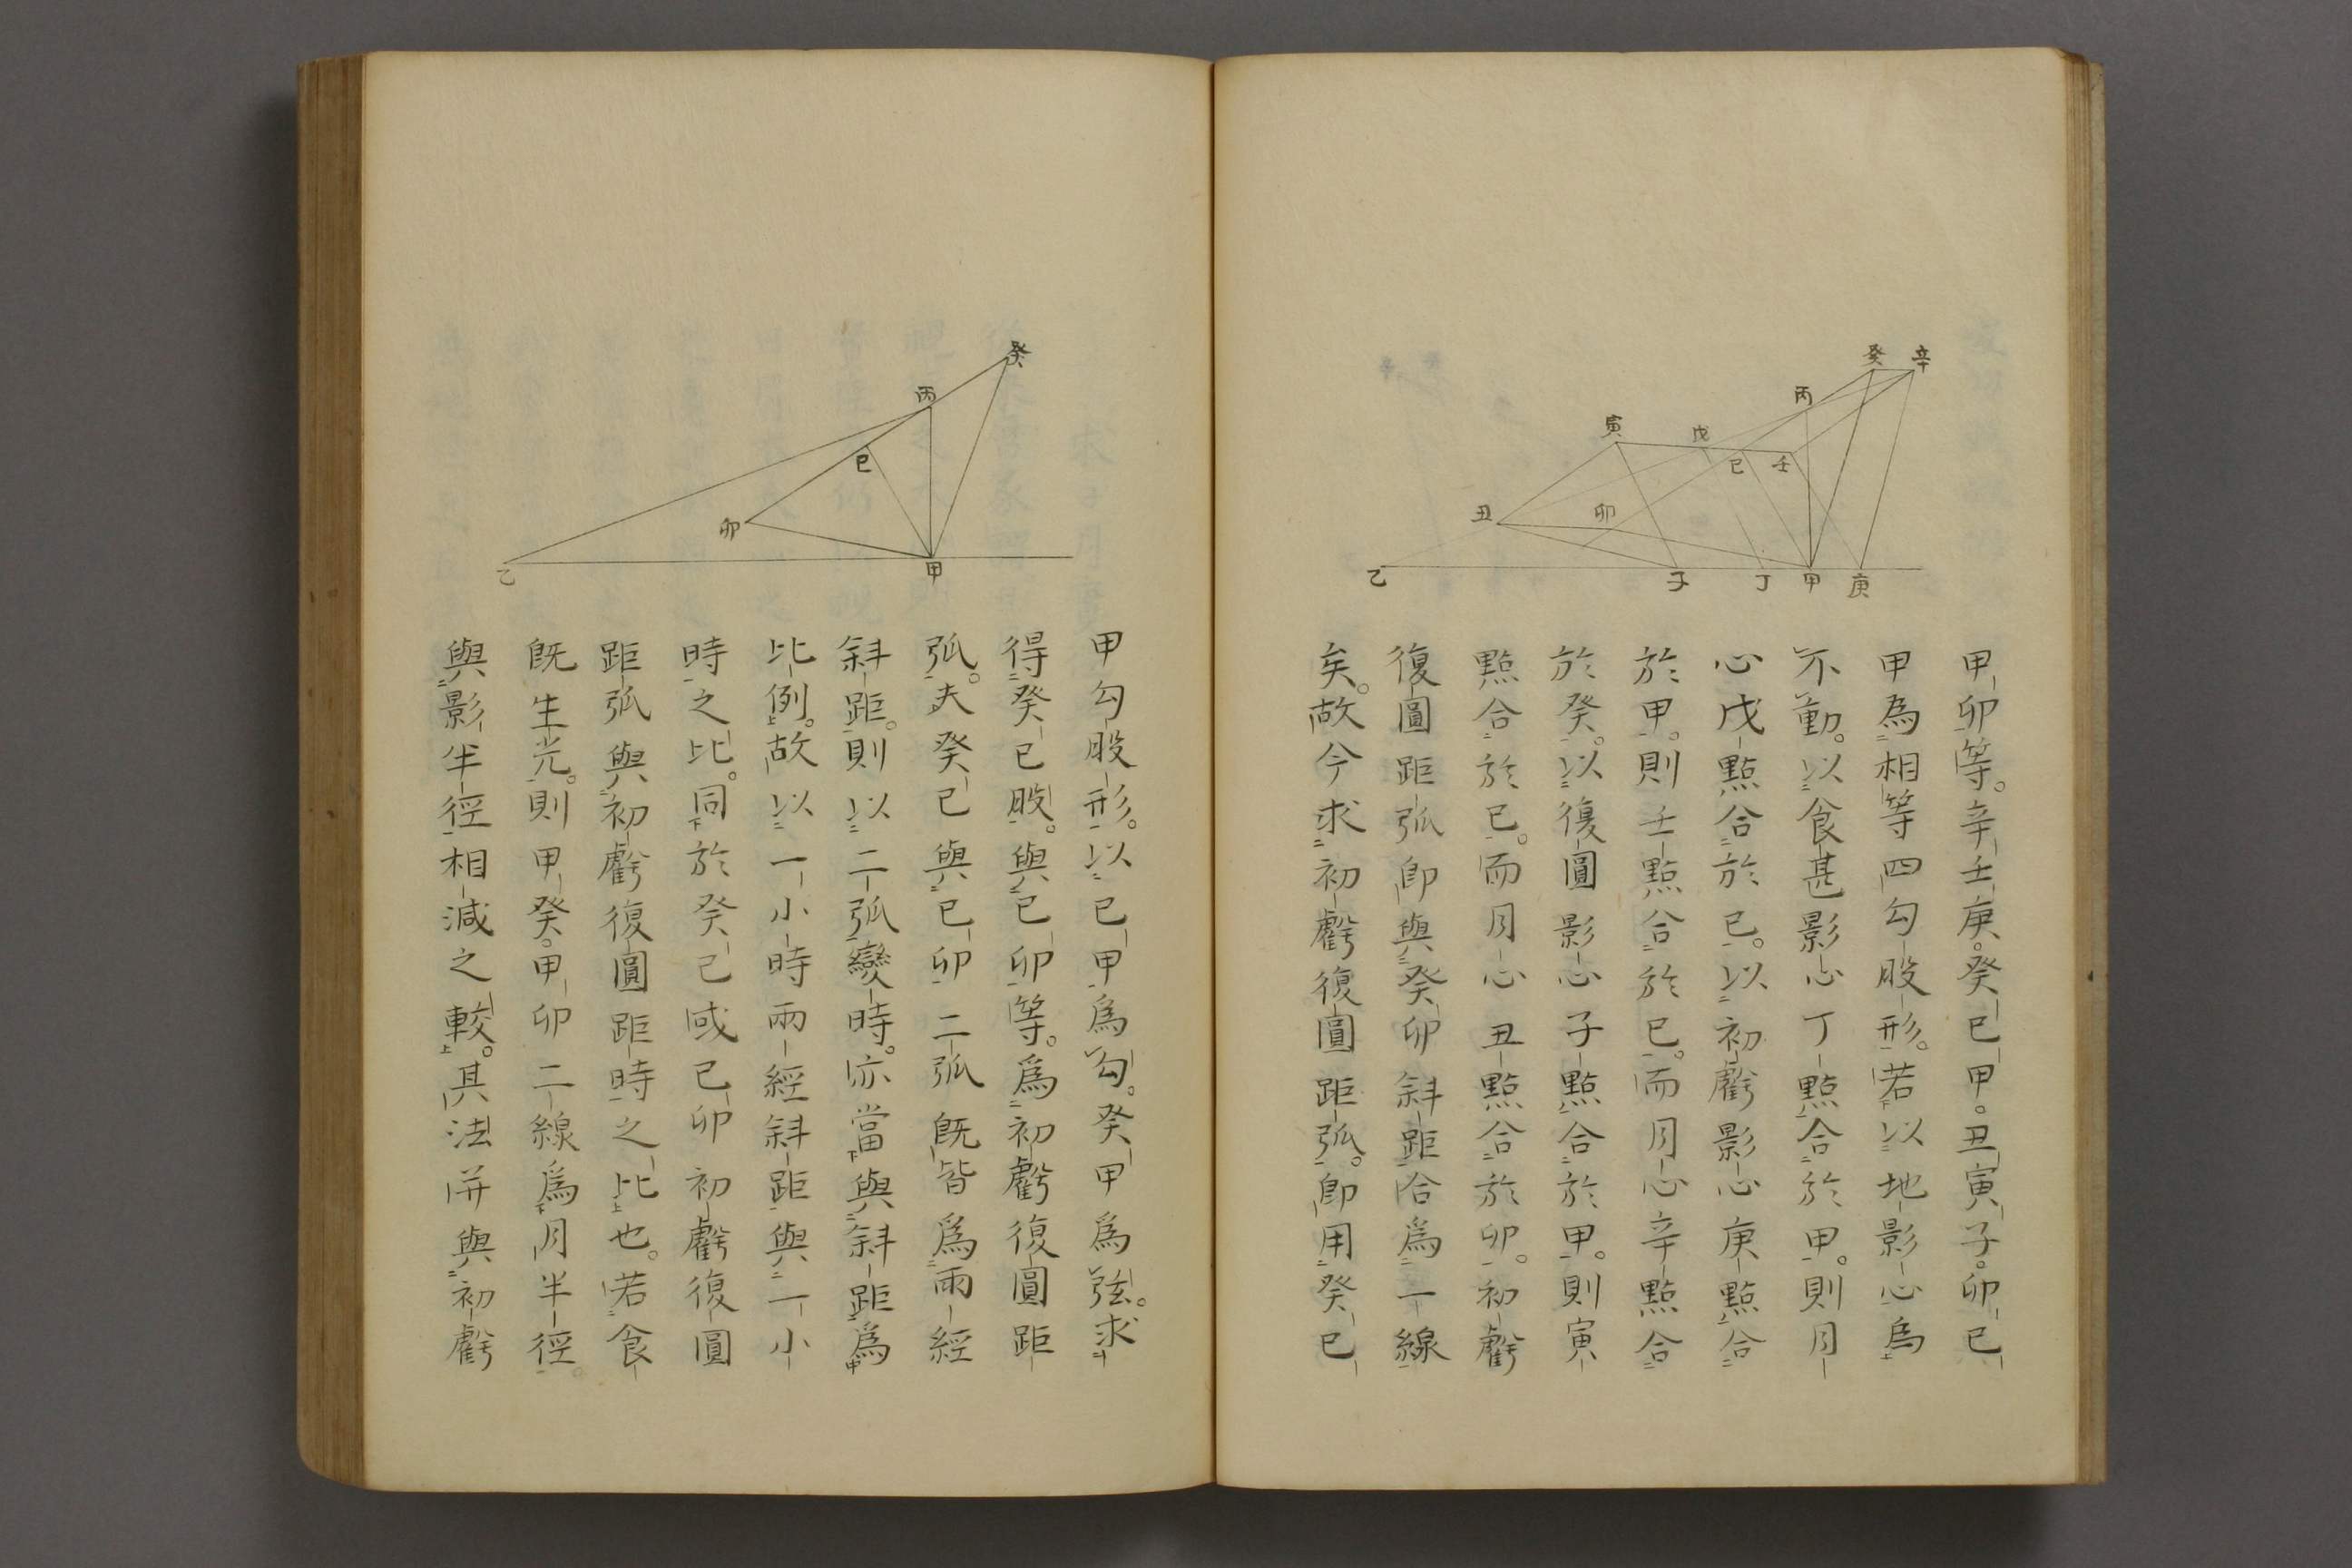 癸
辛
丙
寅
戊
己
壬
丑
卯
乙
子
丁
甲
庚
甲卯等。辛壬庚。癸己甲。丑寅子。卯己
甲為相等四勾股形。若以地影心為
不動。以食甚影心丁點合於甲。則月
心戊點合於己。以初虧影心庚點合
於甲。則壬點合於己。而月心辛點合
於癸。以復圓影心子點合於甲。則寅
點合於己。而月心丑點合於卯。初虧
復圓距弧卽與癸卯斜距合為一線
矣。故今求初虧復圓距弧。卽用癸己
癸
丙
己
卯
乙
甲
甲勾股形。以己甲爲勾。癸甲爲弦。求
得癸己股。與己卯等。爲初虧復圓距
弧。夫癸己與己卯二弧旣皆爲兩經
斜距。則以二弧變時。亦當與斜距爲
比例。故以一小時兩經斜距與一小
時之比。同於癸己或己卯初虧復圓
距弧與初虧復圓距時之比也。若食
旣生光。則甲癸。甲卯二線爲月半徑。
與影半徑相減之較。其法并與初虧